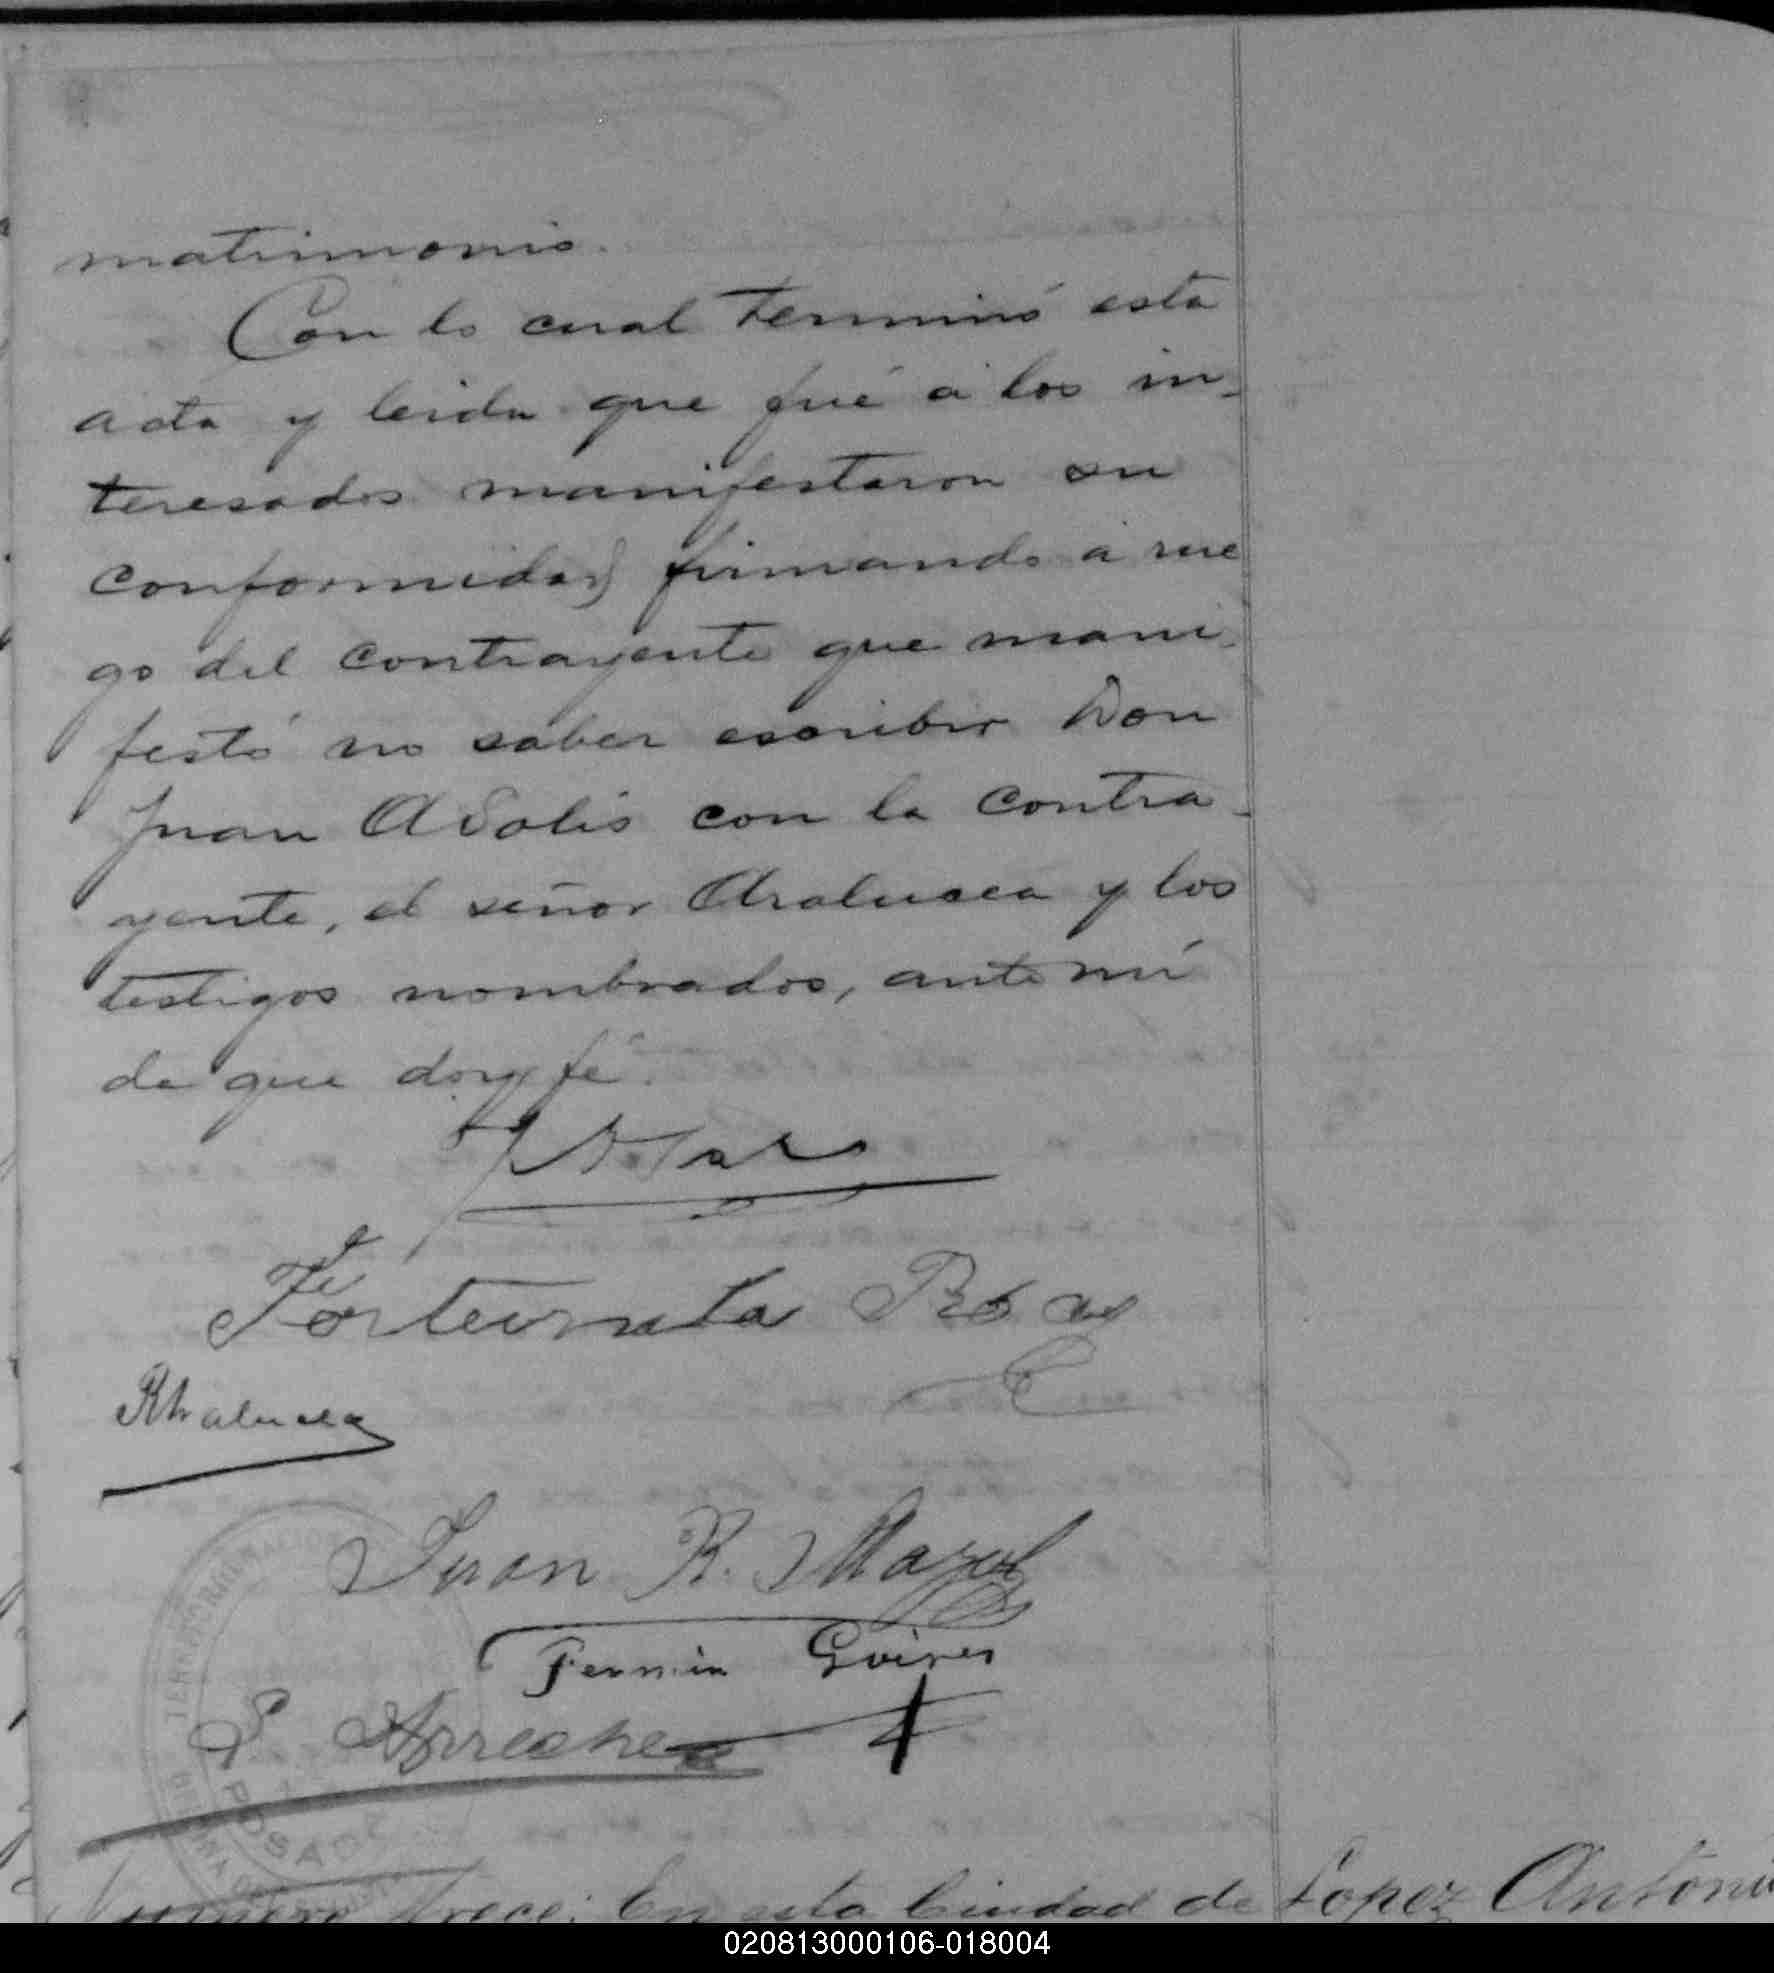 matrimonio.
Con lo cual terminó esta
acta y leida que fué á los in-
teresados manifestaron su
conformidad firmando á rue
go del contrayente que mani-
festó no saber escribir Don
Juan A Solis con la contra-
yente, el señor Araluces y los
testigos nombrados, ante mi
de que doy fé.
Fortunata
Juan R.
Fermin
Arrechea
POSADAS
número trece: En esta Ciudad de
Lopez Antonio
020813000106-018004